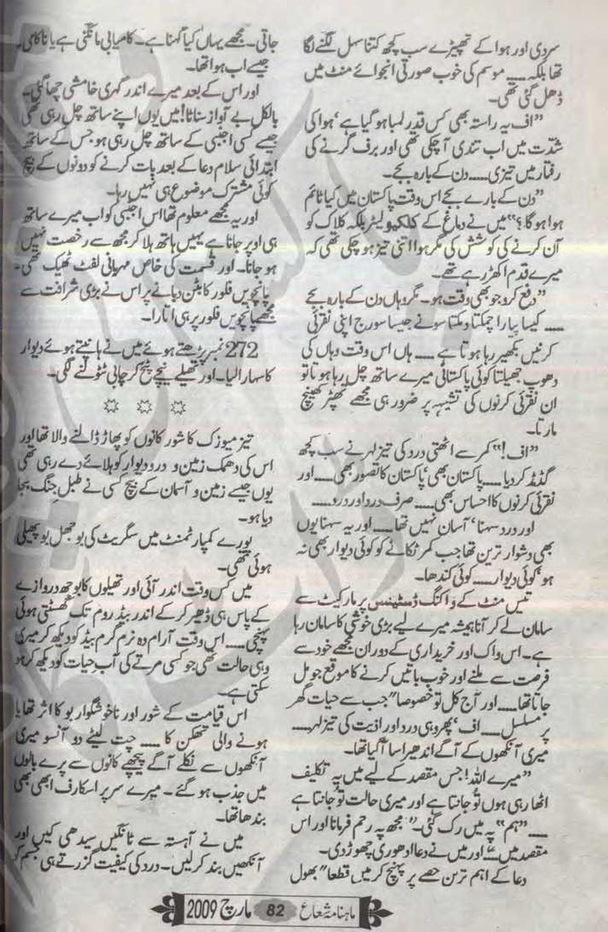 سردی اور ہوا کے تھپیڑے سب کچھ کتنا سہل لگنے لگا
تھا بلکہ ...... موسم کی خوب صورتی انجوائے منٹ میں
ڈھل گئی تھی۔
"اف یہ راستہ بھی کس قدر لمبا ہو گیا ہے' ہوا کی
شدت میں اب تندی آ چکی تھی اور برف گرنے کی
رفتار میں تیزی ...... دن کے بارہ بجے۔
"دن کے بارے بجے اس وقت پاکستان میں کیا ٹائم
ہوا ہو گا؟" میں نے دماغ کے کلکیولیٹر بلکہ کلاک کو
آن کرنے کی کوشش کی مگر ہوا اتنی تیز ہو چکی تھی کہ
میرے قدم اکھڑ رہے تھے۔
"دفع کرو جو بھی وقت ہو۔ مگر وہاں دن کے بارہ بجے
...... کیسا پیارا چمکتا دمکتا سونے جیسا سورج اپنی نقرئی
کرنیں بکھیر رہا ہوتا ہے ...... ہاں اس وقت وہاں کی
دھوپ جھیلتا کوئی پاکستانی میرے ساتھ چل رہا ہوتا تو
ان نقرئی کرنوں کی تشبیہ پر ضرور ہی مجھے تھپڑ کھینچ
مارتا۔
"اف!" کمر سے اٹھتی درد کی تیز لہر نے سب کچھ
گڈمڈ کر دیا ...... پاکستان بھی' پاکستان کا تصور بھی ...... اور
نقرئی کرنوں کا احساس بھی ...... صرف درد اور درد ......
اور درد سہنا' آسان نہیں تھا ...... اور یہ سہنا یوں
بھی دشوار ترین تھا جب کمر ٹکانے کو کوئی دیوار بھی نہ
ہو' کوئی دیوار ...... کوئی کندھا۔
تیس منٹ کے واکنگ ڈسٹینس پر مارکیٹ سے
سامان لے کر آنا ہمیشہ میرے لیے بڑی خوشی کا سامان رہا
ہے۔ اس واک اور خریداری کے دوران مجھے خود سے
فرصت سے ملنے اور خوب باتیں کرنے کا موقع جو مل
جاتا تھا ...... اور آج کل تو خصوصاً" جب سے حیات گھر
پر مسلسل ...... اف' پھر وہی درد اور اذیت کی تیز لہر ......
میری آنکھوں کے آگے اندھیرا سا آ گیا تھا۔
"میرے اللہ! جس مقصد کے لیے میں یہ تکلیف
اٹھا رہی ہوں تو جانتا ہے اور میری حالت تو جانتا ہے
...... "ہم" پہ میں رک گئی۔ "مجھ پہ رحم فرمانا اور اس
مقصد میں ......" اور میں نے دعا ادھوری چھوڑ دی۔
دعا کے اہم ترین حصے پر پہنچ کر میں قطعاً" بھول
جاتی۔ مجھے یہاں کیا کہنا ہے۔ کامیابی مانگنی ہے یا ناکامی۔
جیسے اب ہوا تھا۔
اور اس کے بعد میرے اندر گہری خامشی چھا گئی۔
بالکل بے آواز سناٹا! میں یوں اپنے ساتھ چل رہی تھی
جیسے کسی اجنبی کے ساتھ چل رہی ہو جس کے ساتھ
ابتدائی سلام دعا کے بعد بات کرنے کو دونوں کے بیچ
کوئی مشترک موضوع ہی نہیں رہا۔
اور یہ مجھے معلوم تھا اس اجنبی کو اب میرے ساتھ
ہی اوپر جانا ہے یہیں ہاتھ ہلا کر مجھ سے رخصت نہیں
ہو جانا۔ اور قسمت کی خاص مہربانی لفٹ ٹھیک تھی۔
پانچویں فلور کا بٹن دبانے پر اس نے بڑی شرافت سے
مجھے پانچویں فلور پر ہی اتارا۔
272 نمبر پڑھتے ہوئے میں نے ہانپتے ہوئے دیوار
کا سہارا لیا۔ اور تھیلے نیچے پٹخ کر چابی ٹٹولنے لگی۔
☼ ☼ ☼
تیز میوزک کا شور کانوں کو پھاڑ ڈالنے والا تھا اور
اس کی دھمک زمین و در و دیوار کو ہلائے دے رہی تھی
یوں جیسے زمین و آسمان کے بیچ کسی نے طبل جنگ بجا
دیا ہو۔
پورے کمپارٹمنٹ میں سگریٹ کی بوجھل بو پھیلی
ہوئی تھی۔
میں کس وقت اندر آئی اور تھیلوں کا بوجھ دروازے
کے پاس ہی ڈھیر کر کے اندر بیڈ روم تک گھسٹتی ہوئی
پہنچی ...... اس وقت آرام دہ نرم گرم بیڈ کو دیکھ کر میری
وہی حالت تھی جو کسی مرتے کی آب حیات کو دیکھ کر ہو
سکتی ہے۔
اس قیامت کے شور اور ناخوشگوار بو کا اثر تھا یا
ہونے والی تھکن کا ...... چت لیٹے دو آنسو میری
آنکھوں سے نکلے آگے پیچھے کانوں سے پرے بالوں
میں جذب ہو گئے۔ میرے سر پر اسکارف ابھی بھی
بندھا تھا۔
میں نے آہستہ سے ٹانگیں سیدھی کیں اور
آنکھیں بند کر لیں۔ درد کی کیفیت گزرتے ہی جسم کو
ماہنامہ شعاع 82 مارچ 2009